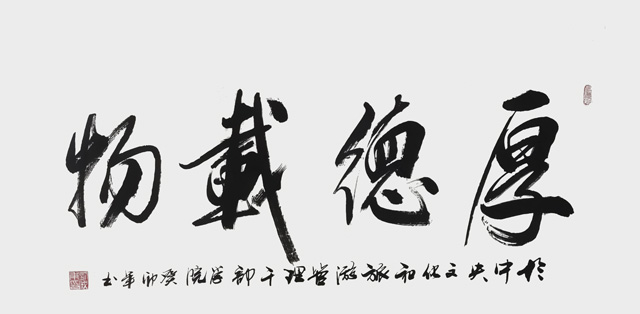 厚德載物
於中央文化和旅游管理干部学院癸卯年书